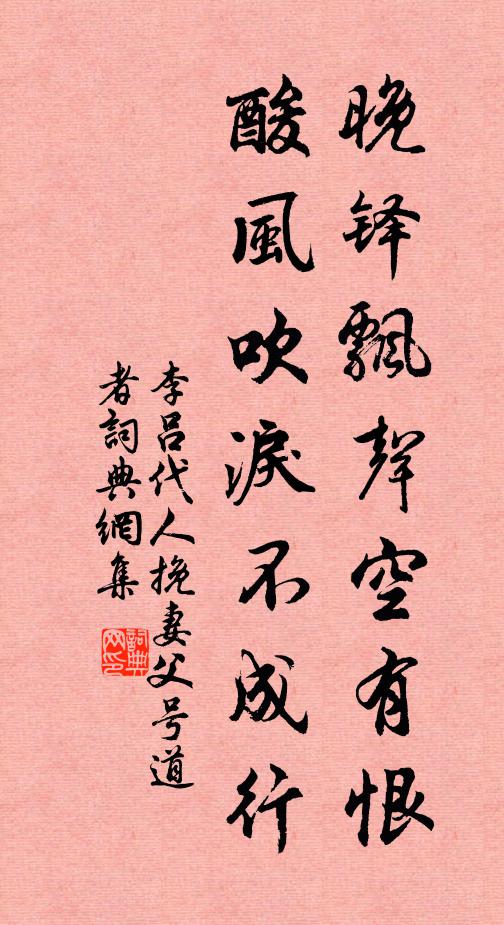 晚铎飘聲空有恨
酸風吹淚不成行
李呂代人挽妻父号道
者詞典網集
詞典网印